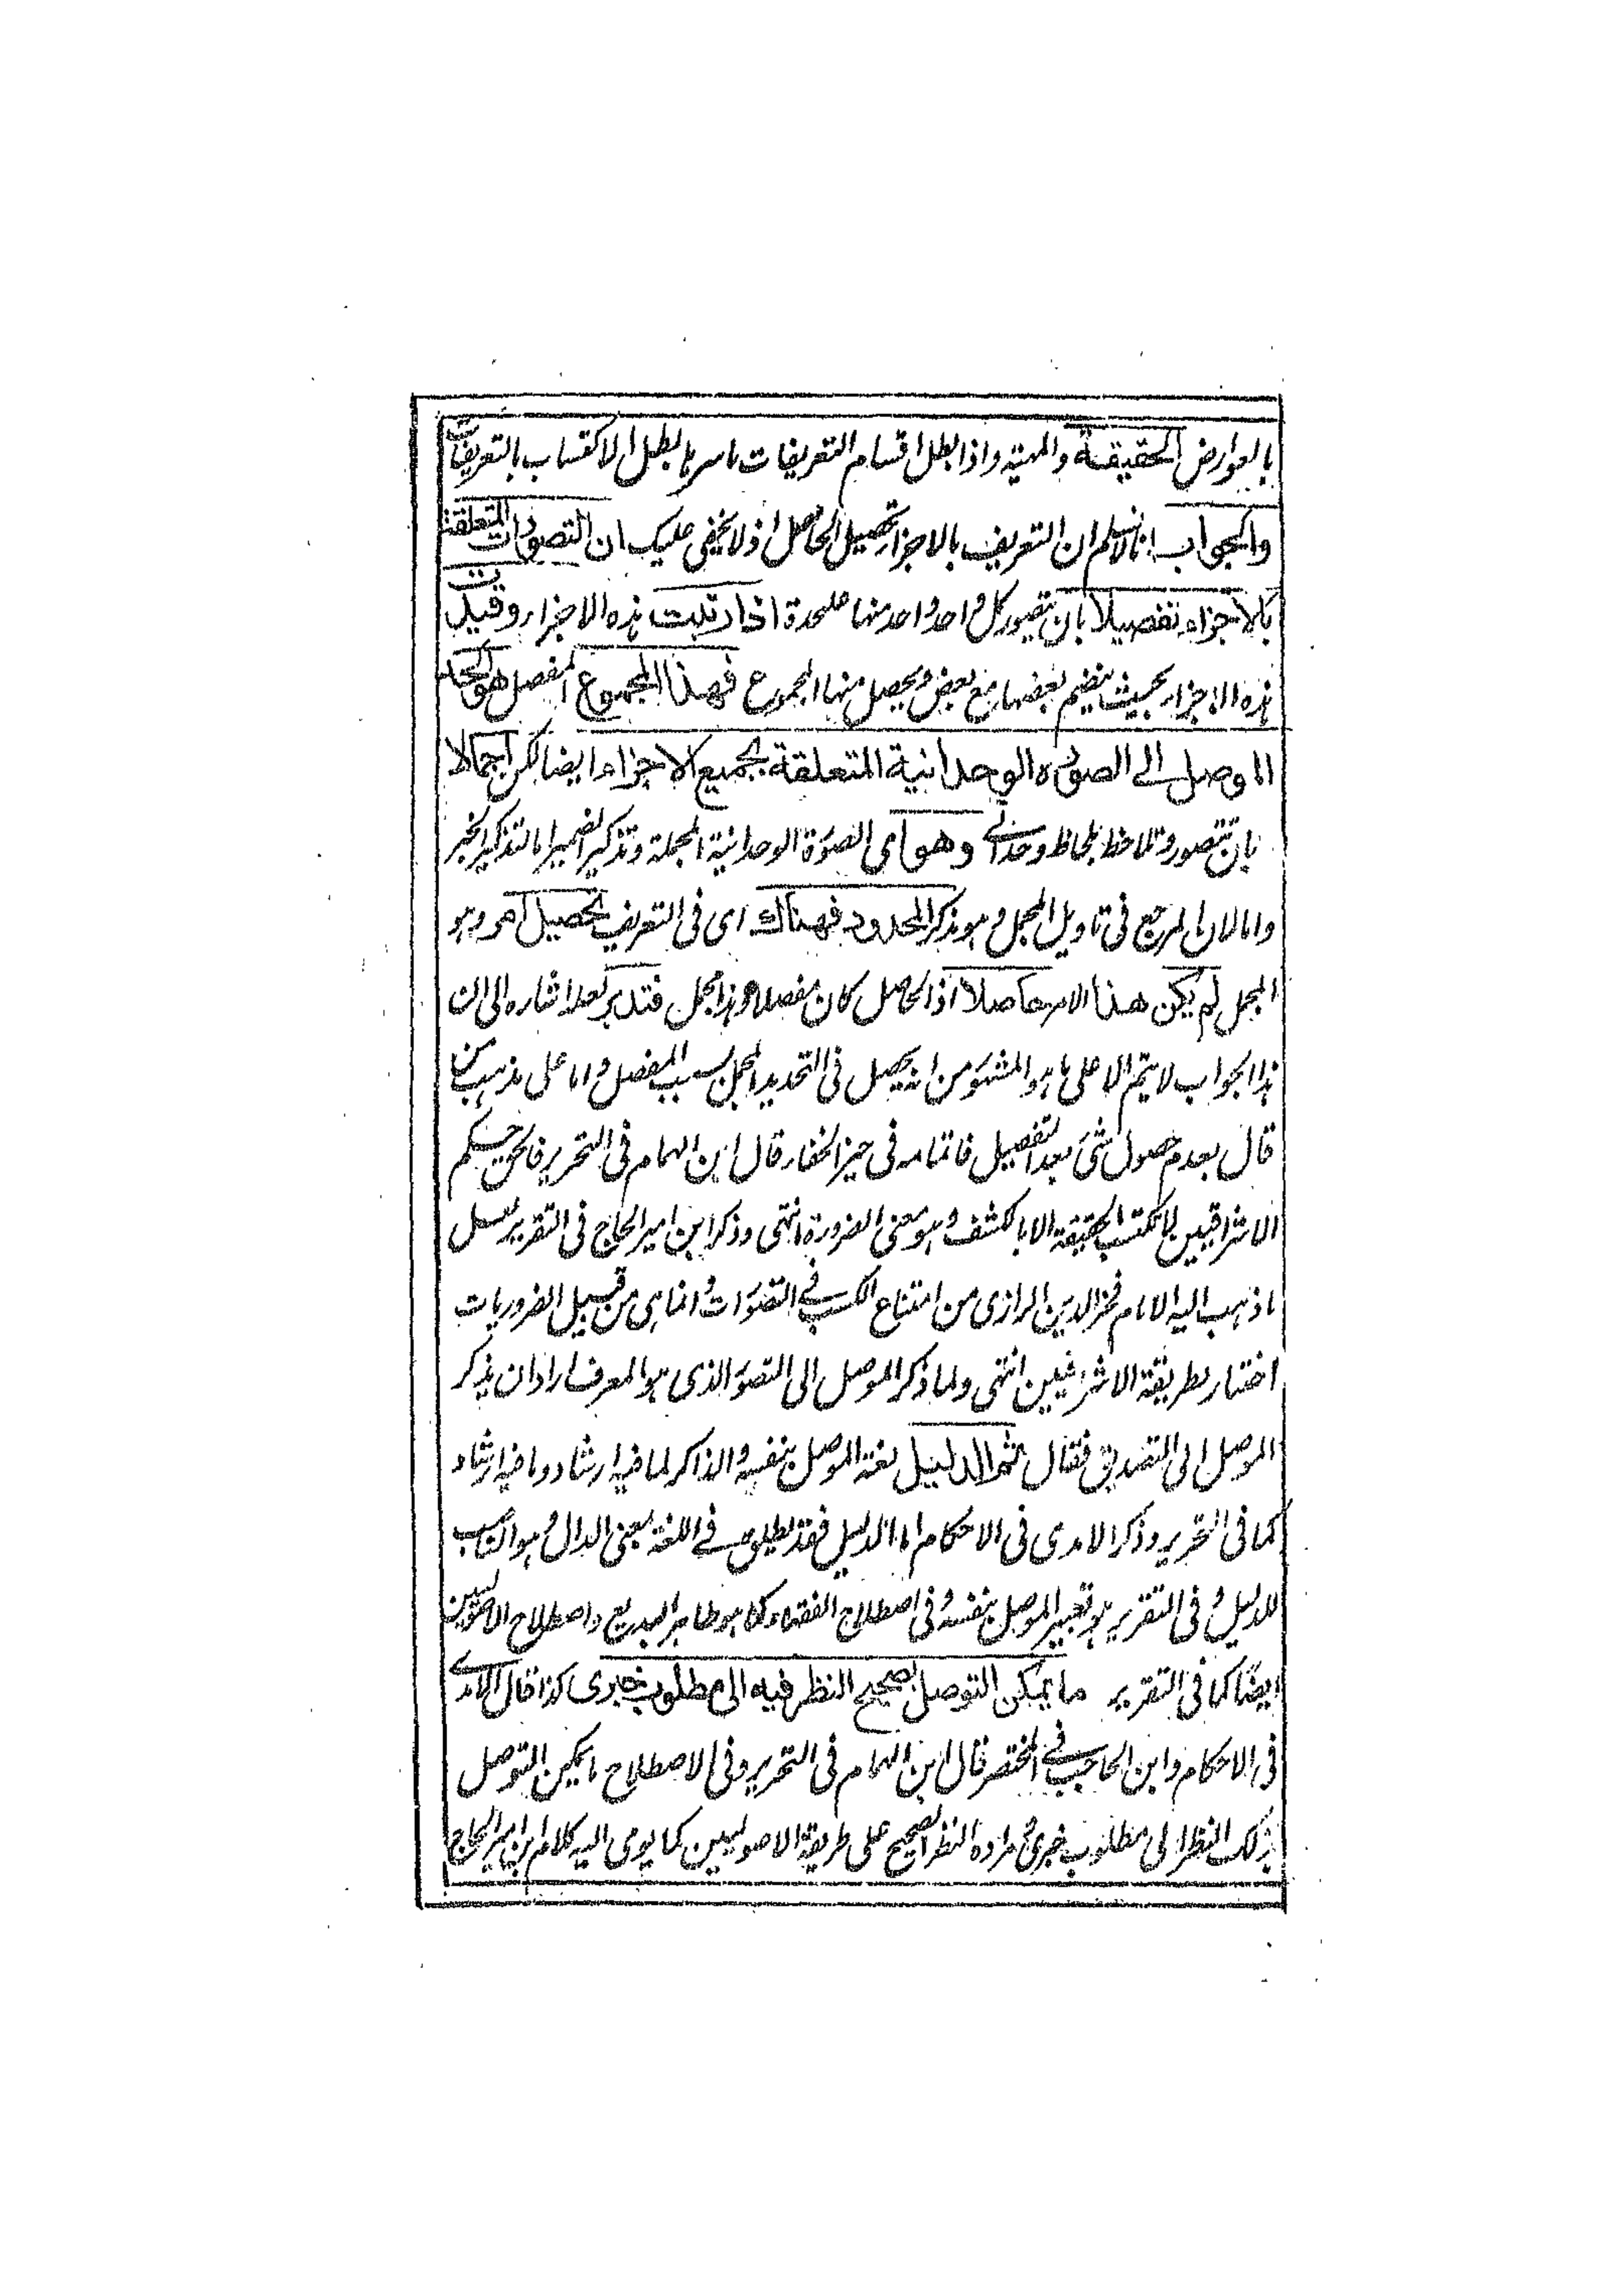 بالعوارض الحقيقة والمهية واذا بطل اقسام التعريفات باسرها بطل الاكتساب بالتعريفات
والجواب انا لا نسلم ان التعريف بالاجزاء تحصيل الحاصل اذ لا يخفى عليك ان التصورات المتعلقة
بالاجزاء تفصيلا بان يتصور كل واحد واحد منها علحدة اذا رتبت هذه الاجزاء وقيدت
هذه الاجزاء بحيث ينضم بعضها مع بعض ويحصل منها المجموع فهذا المجموع المفصل هو الحد
الموصل الى الصورة الوحدانية المتعلقة بجميع الاجزاء ايضا لكن اجمالا
بان تتصور وتلاحظ بلحاظ وحداني وهو اى الصورة الوحدانية المجملة وتذكير الضمير اما لتذكير الخبر
واما لان المرجع فى تاويل المجمل وهو مذكر المحدود فهناك اى فى التعريف تحصيل امر وهو
المجمل لم يكن هذا الامر حاصلا اذ الحاصل كان مفصلا وهذا مجمل فتدبر لعله اشاره الى ان
هذا الجواب لا يتم الا على ما هو المشهور من انه يحصل فى التحديد المجمل بسبب المفصل واما على مذهب من
قال بعدم حصول شئ بعد التفصيل فاتمامه فى حيز الخفاء قال ابن الهمام فى التحرير فالحق حكم
الاشراقيين لا تكتسب الحقيقة الا بالكشف وهو معنى الضرورة انتهى وذكر ابن امير الحاج فى التقرير لعل
ما ذهب اليه الامام فخر الدين الرازى من امتناع الكسب فى التصورات وانما هى من قبيل الضروريات
اختيار لطريقة الاشراقيين انتهى ولما ذكر الموصل الى التصور الذى هو المعرف اراد ان يذكر
الموصل الى التصديق فقال ثم الدليل لغة الموصل بنفسه والذاكر لما فيه ارشاد وما فيه ارشاد
كما فى التحرير وذكر الامدى فى الاحكام اما الدليل فقد يطلق فى اللغة بمعنى الدال وهو الناصب
للدليل وفى التقرير هو تعبير الموصل بنفسه وفى اصطلاح الفقهاء كما هو ظاهر البديع واصطلاح الاصوليين
ايضا كما فى التقرير ما يمكن التوصل بصحيح النظر فيه الى مطلوب خبرى كذا قال الامدى
فى الاحكام وابن الحاجب فى المختصر قال ابن الهمام فى التحرير وفى الاصطلاح ما يمكن التوصل
بذلك النظر الى مطلوب خبرى ومراده النظر الصحيح على طريقة الاصوليين كما يومى اليه كلام ابن امير الحاج